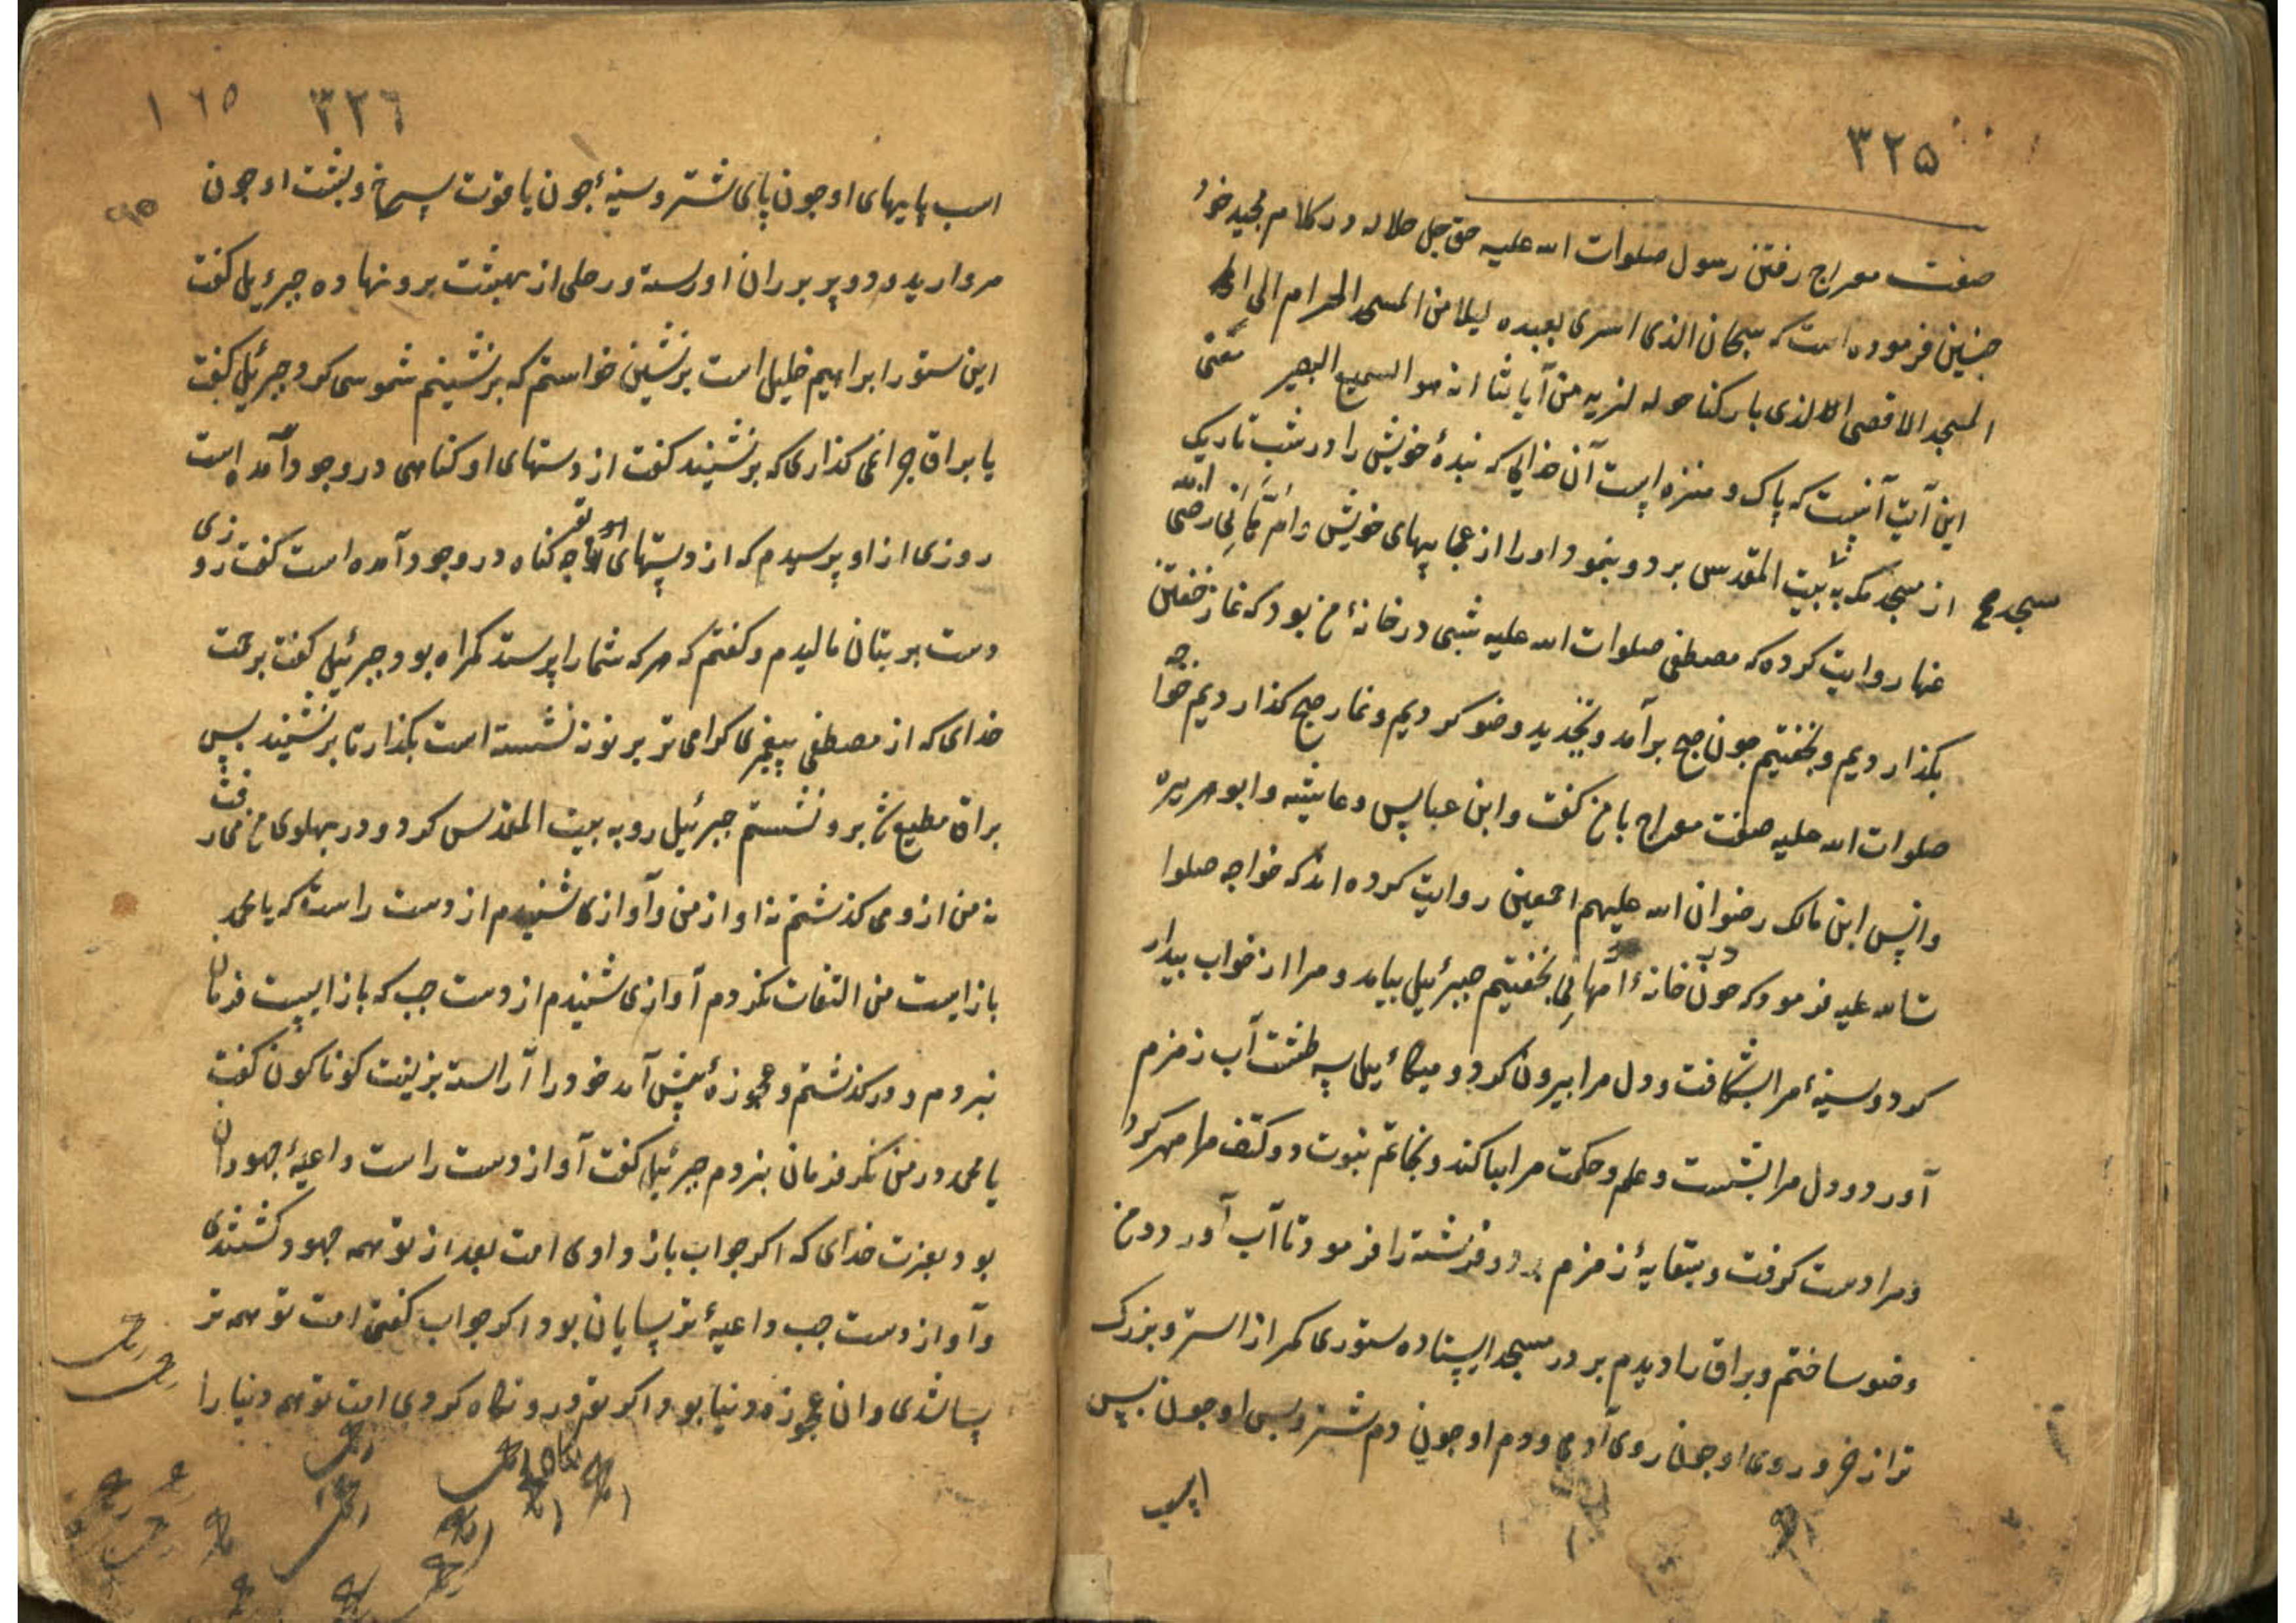 ۳۲۵
صفت معراج رفتن رسول صلوات الله علیه حق جل جلاله در کلام مجید خود
چنین فرموده است که سبحان الذی اسری بعبده لیلا من المسجد الحرام الی
المسجد الاقصی الذی بارکنا حوله لنریه من آیاتنا انه هو السمیع البصیر معنی
این آیت آنست که پاک و منزه است آن خدایی که بندهٔ خویش را در شب تاریک
از مسجد مکه به بیت المقدس برد و بنمود او را از عجایبهای خویش و ام هانی رضی الله
مسجد
عنها روایت کرده که مصطفی صلوات الله علیه شبی در خانهٔ من بود که نماز خفتن
بکذاردیم و بخفتیم جون صبح برآمد و بتجدید وضو کردیم و نماز صبح کذاردیم خواجه
صلوات الله علیه صفت معراج با من کفت و ابن عباس و عایشه و ابو هریره
و انس ابن مالک رضوان الله علیهم اجمعین روایت کرده اند که خواجه صلوا
ت الله علیه فرمود که جون در خانهٔ امهانی بخفتیم جبرئیل بیامد و مرا از خواب بیدار
کرد و سینهٔ مرا بشکافت و دل مرا بیرون کرد و میکائیل سه طشت آب زمزم
آورد و دل مرا بشست و علم و حکمت مرا بیاکند و بخاتم نبوت دو کتف مرا مهر کرد
و مرا دست کرفت و بسقایهٔ زمزم برد و فرشته را فرمود تا آب آورد و من
وضو ساختم و براق را دیدم بر در مسجد ایستاده ستوری کمتر از استر و بزرک
تر از خر و روی او جون روی آدمی و دم او جون دم شتر و بس او جون بس
اسب
۳۲٦
۱٦٥
اسب پایهای او جون پای شتر و سینهٔ جون یاقوت سرخ و پشت او جون
مروارید و دو پر بر ران او رسته و رحلی از بهشت برو نهاده جبرئیل کفت
این ستور ابراهیم خلیل است برنشین خواستم که برنشینم شموسی کرد جبرئیل کفت
یا براق جرا نمی کذاری که برنشیند کفت از دستهای او کناهی در وجود آمده است
روزی از او پرسیدم که از دستهای تو جه کناه در وجود آمده است کفت روزی
دست بر بتان مالیدم و کفتم که هر که شما را پرستد کمراه بود جبرئیل کفت بعزت
خدای که از مصطفی پیغمبری کرامی تر بر تو نه نشسته است بکذار تا برنشیند پس
براق مطیع شد برو نشستم جبرئیل رو به بیت المقدس کرد و در پهلوی من می رفت
نه من از وی کذشتم نه او از من و آوازی شنیدم از دست راست که یا محمد
باز ایست من التفات نکردم آوازی شنیدم از دست جب که باز ایست فرمان
نبردم و در کذشتم و عجوزهٔ پیش آمد خود را آراسته بزینت کوناکون کفت
یا محمد در من نکر فرمان نبردم جبرئیل کفت آواز دست راست داعیهٔ جهودان
بود بعزت خدای که اکر جواب باز دادی امت بعد از تو همه جهود کشتندی
و آواز دست جب داعیهٔ ترسایان بود اکر جواب کفتی امت تو همه تر
سا شدی و ان عجوزه دنیا بود اکر تو درو نکاه کردی امت تو همه دنیا را